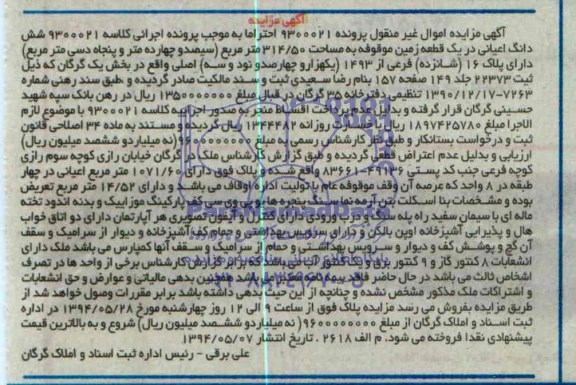 آگهی مزایده
آگهی مزایده اموال غیر منقول پرونده ۹۳۰۰۰۲۱ احتراما به موجب پرونده اجرائی کلاسه ۹۳۰۰۰۲۱ شش
دانگ اعیانی در یک قطعه زمین موقوفه به مساحت ۳۱۴/۵۰ متر مربع (سیصدو چهارده متر و پنجاه دسی متر مربع)
دارای پلاک ۱۶ (شانزده) فرعی از ۱۴۹۳ (یکهزارو چهارصدو نود و سه) اصلی واقع در بخش یک گرگان که ذیل
ثبت ۲۲۳۷۳ جلد ۱۴۹ صفحه ۱۵۷ بنام رضا سعیدی ثبت و سند مالکیت صادر گردیده و ،طبق سند رهنی شماره
۷۲۶۳-۱۳۹۰/۱۲/۱۷ تنظیمی دفترخانه ۳۵ گرگان در قبال مبلغ ۱۳۵۰۰۰۰۰۰۰ ریال در رهن بانک سپه شهید
حسینی گرگان قرار گرفته و بدلیل عدم پرداخت اقساط منجر به صدور اجرائیه کلاسه ۹۳۰۰۰۲۱ با موضوع لازم
الاجرا مبلغ ۱۸۹۷۴۲۵۷۸۰ ریال با خسارت روزانه ۱۳۴۴۴۸۲ ریال گردیده و مستند به ماده ۳۴ اصلاحی قانون
ثبت و درخواست بستانکار و طبق نظر کارشناس رسمی به مبلغ ۹۶۰۰۰۰۰۰۰۰ (نه میلیارد و ششصد میلیون ریال)
ارزیابی و بدلیل عدم اعتراض قطعی گردیده و طبق گزارش کارشناس ملک در گرگان خیابان رازی کوچه سوم رازی
کوچه فرعی جنب کد پستی ۴۹۱۳۶-۸۳۶۶۱ واقع شده و پلاک فوق دارای ۱۰۷۱/۶۰ متر مربع اعیانی در چهار
طبقه در ۸ واحد که عرصه آن وقف موقوفه عام با تولیت اداره اوقاف می باشد و دارای ۱۴/۵۲ متر مربع تعریض
بوده و مشخصات بنا اسکلت بتن آرمه نما سنگ پنجره ها یو پی وی سی کف پارکینگ موزاییک و بدنه اندود تخته
ماله ای با سیمان سفید راه پله سنگ درب ورودی دارای کنترل آیفون تصویری هر آپارتمان دارای دو اتاق خواب
هال و پذیرایی آشپزخانه اوپن بالکن و دارای سرویس بهداشتی و حمام کف آشپزخانه و دیوار از سرامیک و سقف
آن گچ و پوشش کف و دیوار و سرویس بهداشتی و حمام از سرامیک و سقف آنها کمپارس می باشد ملک دارای
انشعابات ۸ کنتور گاز و ۹ کنتور برق و یک کنتور آب می باشد که برابر گزارش کارشناس برخی از واحد ها در تصرف
اشخاص ثالث می باشد در حال حاضر فاقد بیمه نامه معتبر می باشد همچنین بدهی مالیاتی و عوارض و حق انشعابات
و اشتراکات ملک مذکور مشخص نشده و چنانچه از این حیث بدهی داشته باشد برابر مقررات وصول خواهد شد از
طریق مزایده بفروش می رسد مزایده پلاک فوق از ساعت ۹ الی ۱۲ روز چهارشنبه مورخ ۱۳۹۴/۰۵/۲۸ در اداره
ثبت اسناد و املاک گرگان از مبلغ ۹۶۰۰۰۰۰۰۰۰ (نه میلیاردو ششصد میلیون ریال) شروع و به بالاترین قیمت
پیشنهادی نقدا فروخته می شود. م الف ۲۶۱۸ . تاریخ انتشار ۱۳۹۴/۰۵/۰۷
علی برقی - رئیس اداره ثبت اسناد و املاک گرگان